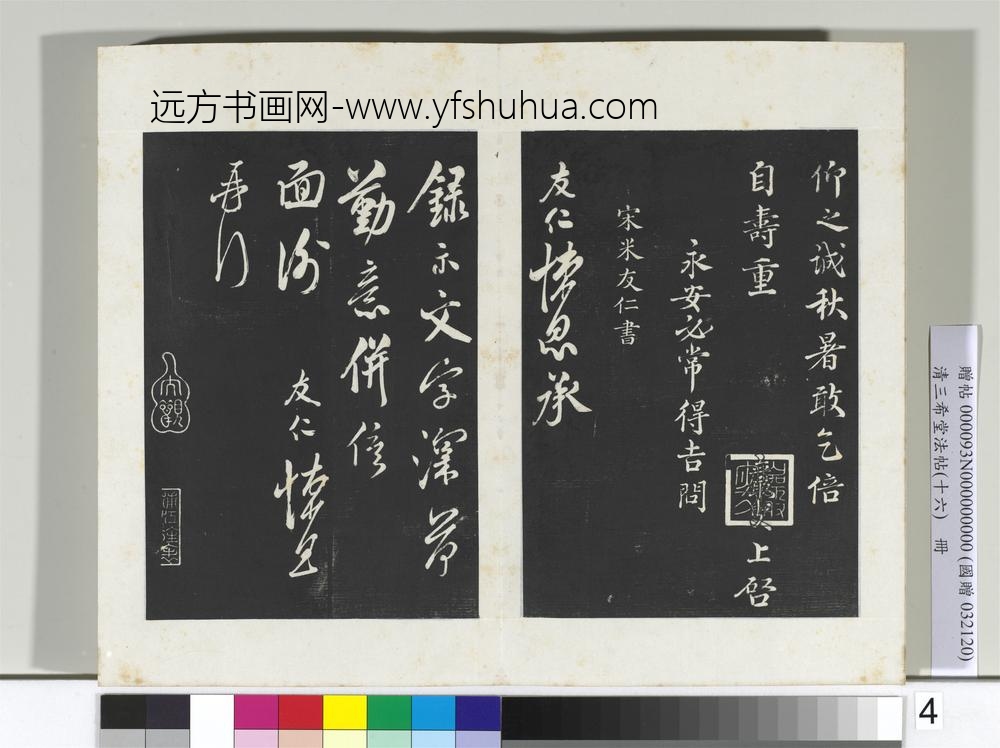 远方书画网-www.yfshuhua.com
仰之誠秋暑敢乞倍
自壽重
上啓
永安必常得吉問
宋米友仁書
友仁悚息承
錄示文字深荷
勤意併俟
面謝
友仁悚息
再行
大觀
贈帖 000093N000000000 (國贈 032120)
清三希堂法帖(十六) 冊
4